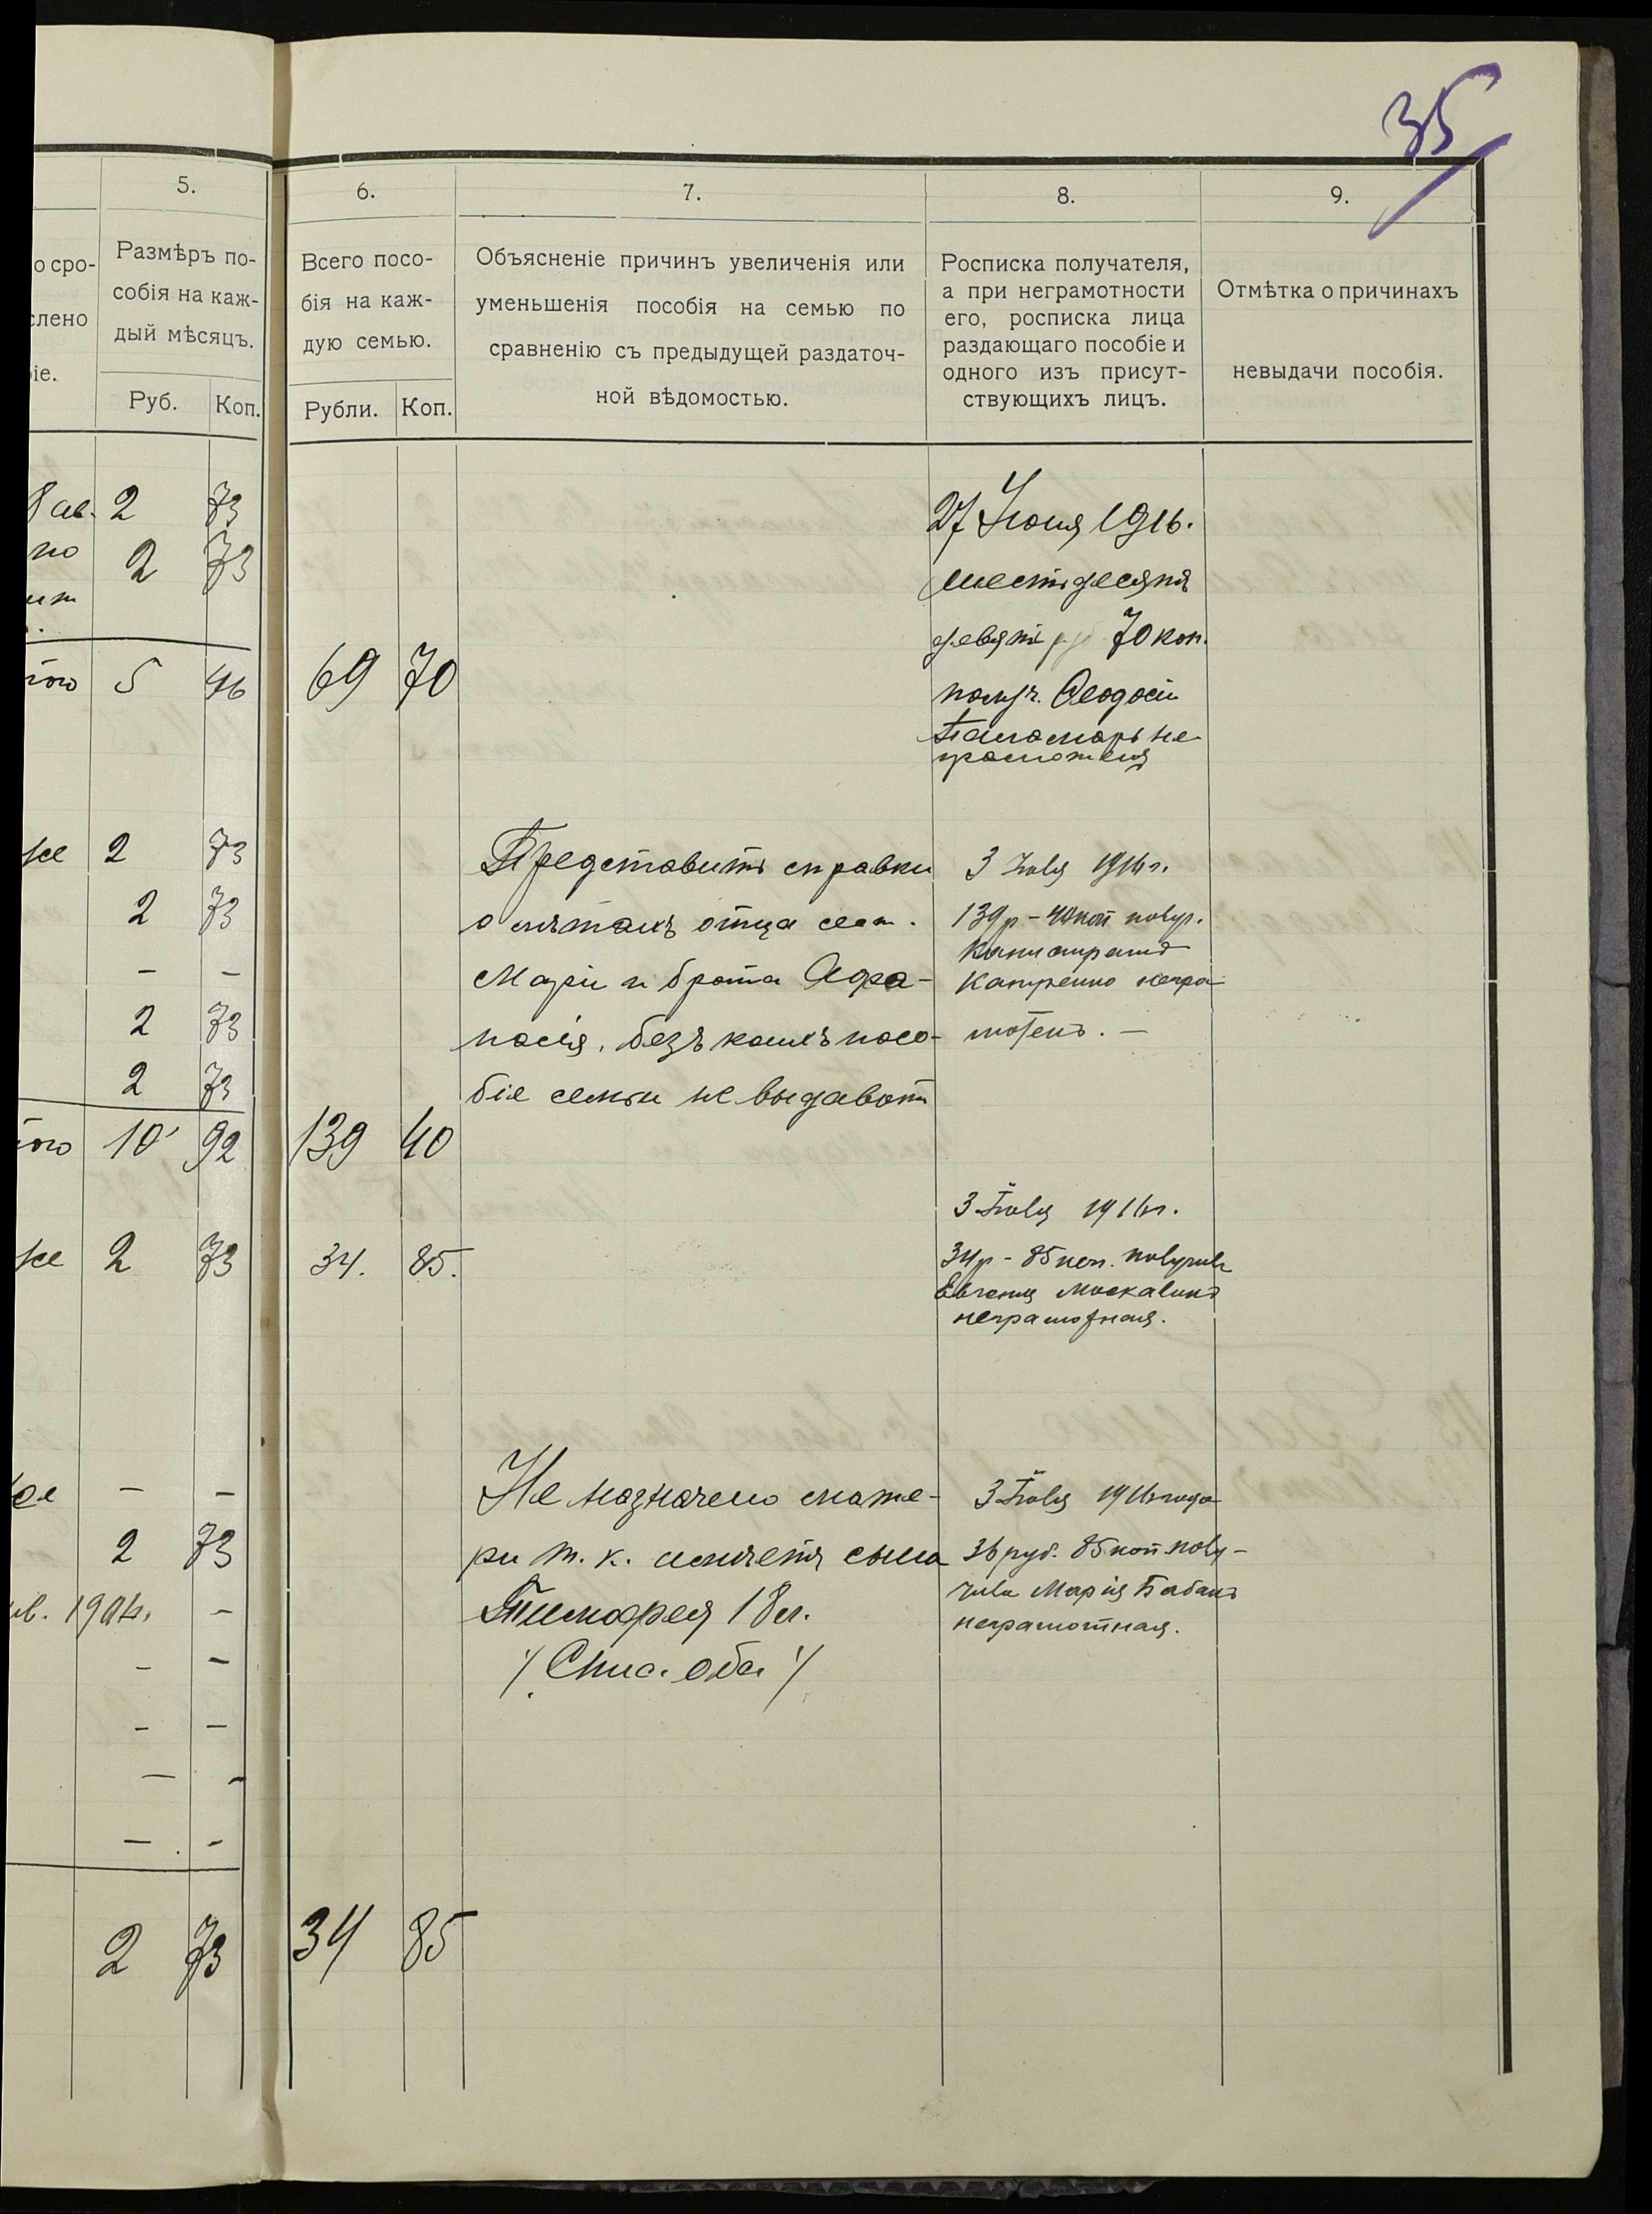 35
5.
о сро-
слено
іе.
Размѣръ по-
собія на каж-
дый мѣсяцъ.
Руб. Коп.
6.
Всего посо-
бія на каж-
дую семью.
Рубли. Коп.
7.
Объясненіе причинъ увеличенія или
уменьшенія пособія на семью по
сравненію съ предыдущей раздаточ-
ной вѣдомостью.
8.
Росписка получателя,
а при неграмотности
его, росписка лица
раздающаго пособіе и
одного изъ присут-
ствующихъ лицъ.
9.
Отмѣтка о причинахъ
невыдачи пособія.
8 ав. 2 73
по 2 73
того 5 46
69 70
27 Іюня 1916.
шестьдесятъ
девять руб 70 коп.
получ. Ѳеодосій
Паламарь не
грамотенъ
же 2 73
2 73
- -
2 73
2 73
того 10 92
139 40
Представить справки
о лѣтахъ отца сем.
Марѳи и брата Афа-
насія, безъ коихъ посо-
біе семьи не выдавать
3 Іюля 1916 г.
139 р - 40 коп получ.
Калистратъ
неgra-
мотенъ. -
же 2 73
34. 85.
3 Іюля 1916 г.
34 р - 85 коп. получила
Евгенія
неграмотная.
- -
2 73
-
- -
- -
- -
- -
2 73
34 85
Не назначено мате-
ри т. к. имѣетъ сына
Тимофея 18 л.
3 Іюля 1916 года
руб. 85 коп полу-
чила Марія Бабакъ
неграмотная.